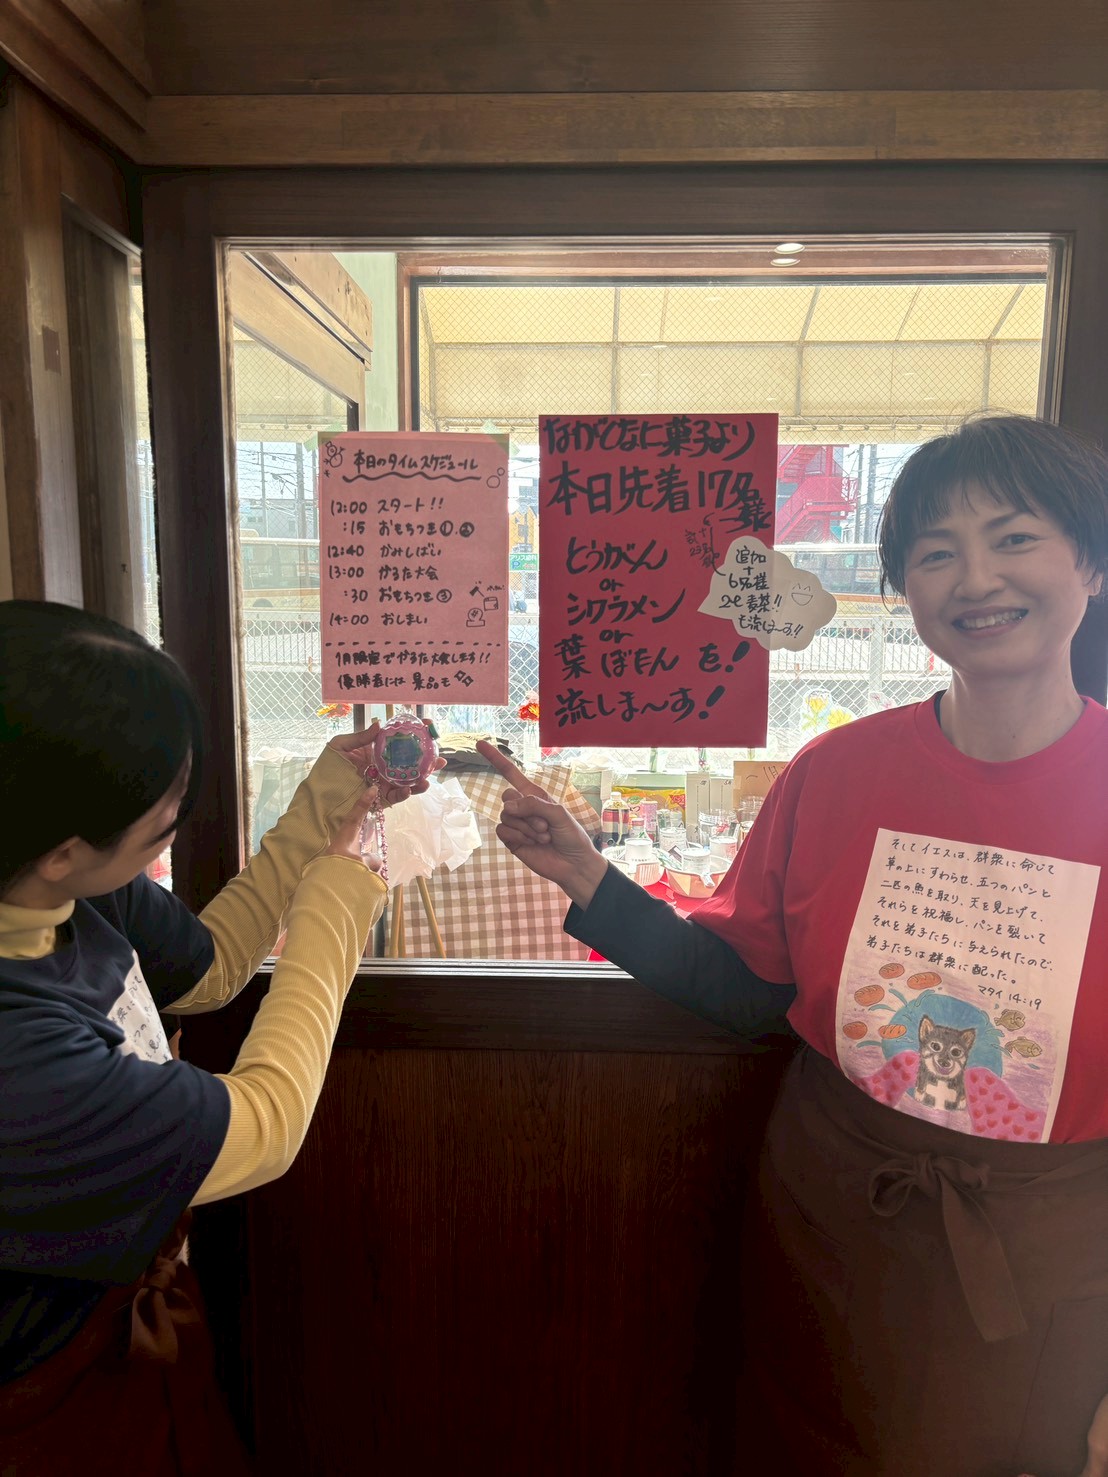 本日のタイムスケジュール
12:00 スタート!!
:15 おもちつき①.②
12:40 かみしばい
13:00 かるた大会
:30 おもちつき③
14:00 おしまい
1月限定でかるた大会します!!
優勝者には景品も
ながとなに菓子より
本日先着17名様
とうがん
or
シクラメン
or
葉ぼたん を!
流しま〜す!
追加
+
6名様
2ℓ麦茶!!
も流しま〜す!!
そしてイエスは、群衆に命じて
草の上にすわらせ、五つのパンと
二匹の魚を取り、天を見上げて、
それらを祝福し、パンを裂いて
それを弟子たちに与えられたので、
弟子たちは群衆に配った。
マタイ 14:19